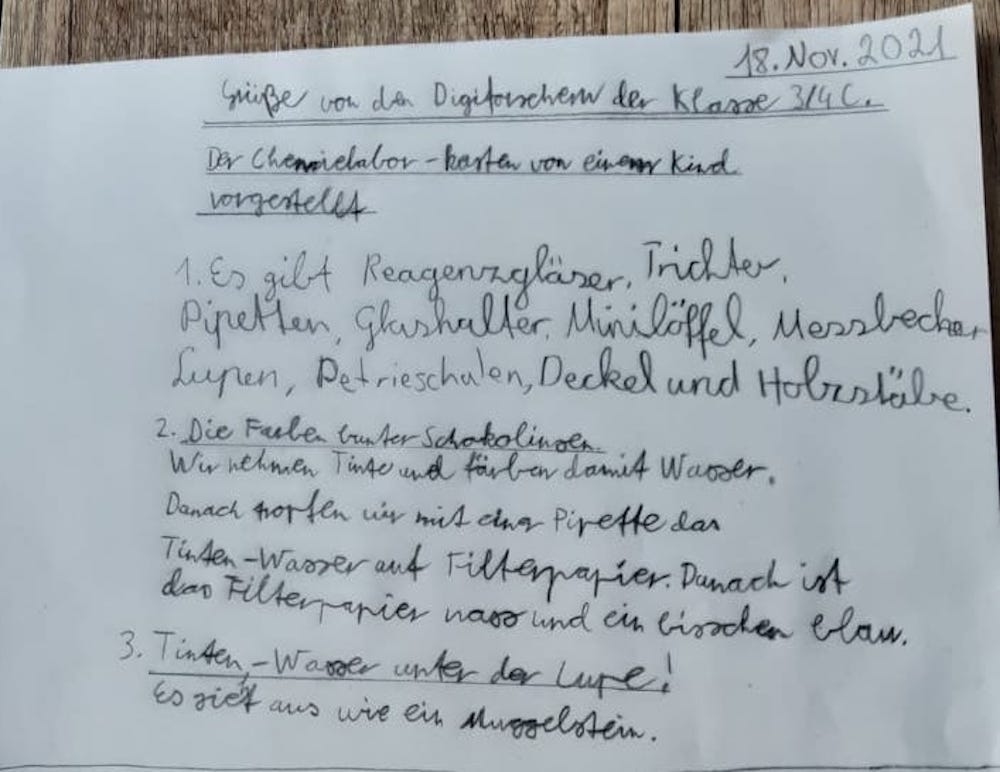 18. Nov. 2021
Grüße von den Digiforschern der Klasse 3/4 C.
Der Chemielabor-kasten von einem Kind
vorgestellt
1. Es gibt Reagenzgläser, Trichter,
Pipetten, Glashalter, Minilöffel, Messbecher
Lupen, Petrieschalen, Deckel und Holzstäbe.
2. Die Farben bunter Schokolinsen.
Wir nehmen Tinte und färben damit Wasser.
Danach tropfen wir mit einer Pipette das
Tinten-Wasser auf Filterpapier. Danach ist
das Filterpapier nass und ein bisschen blau.
3. Tinten-Wasser unter der Lupe!
Es sieht aus wie ein Muggelstein.